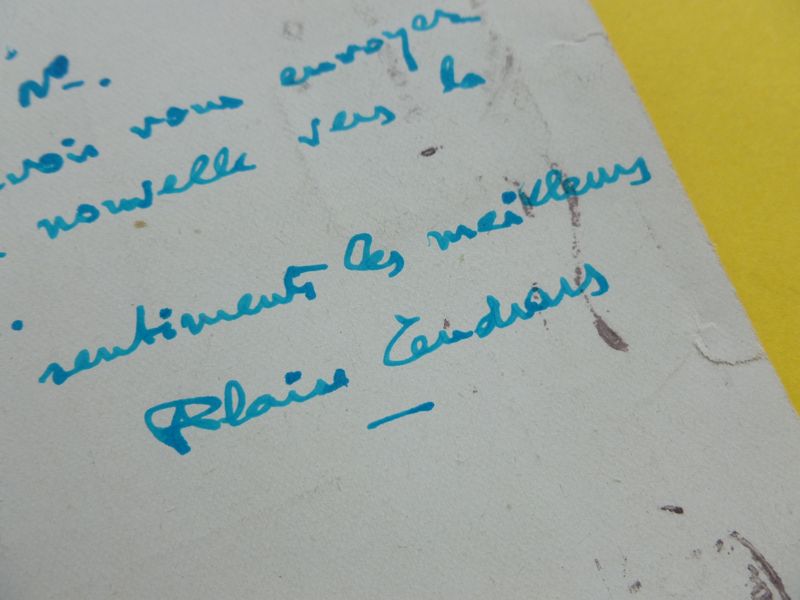 N°.
vous envoyer
nouvelle vers la
sentiments les meilleurs
Blaise Cendrars